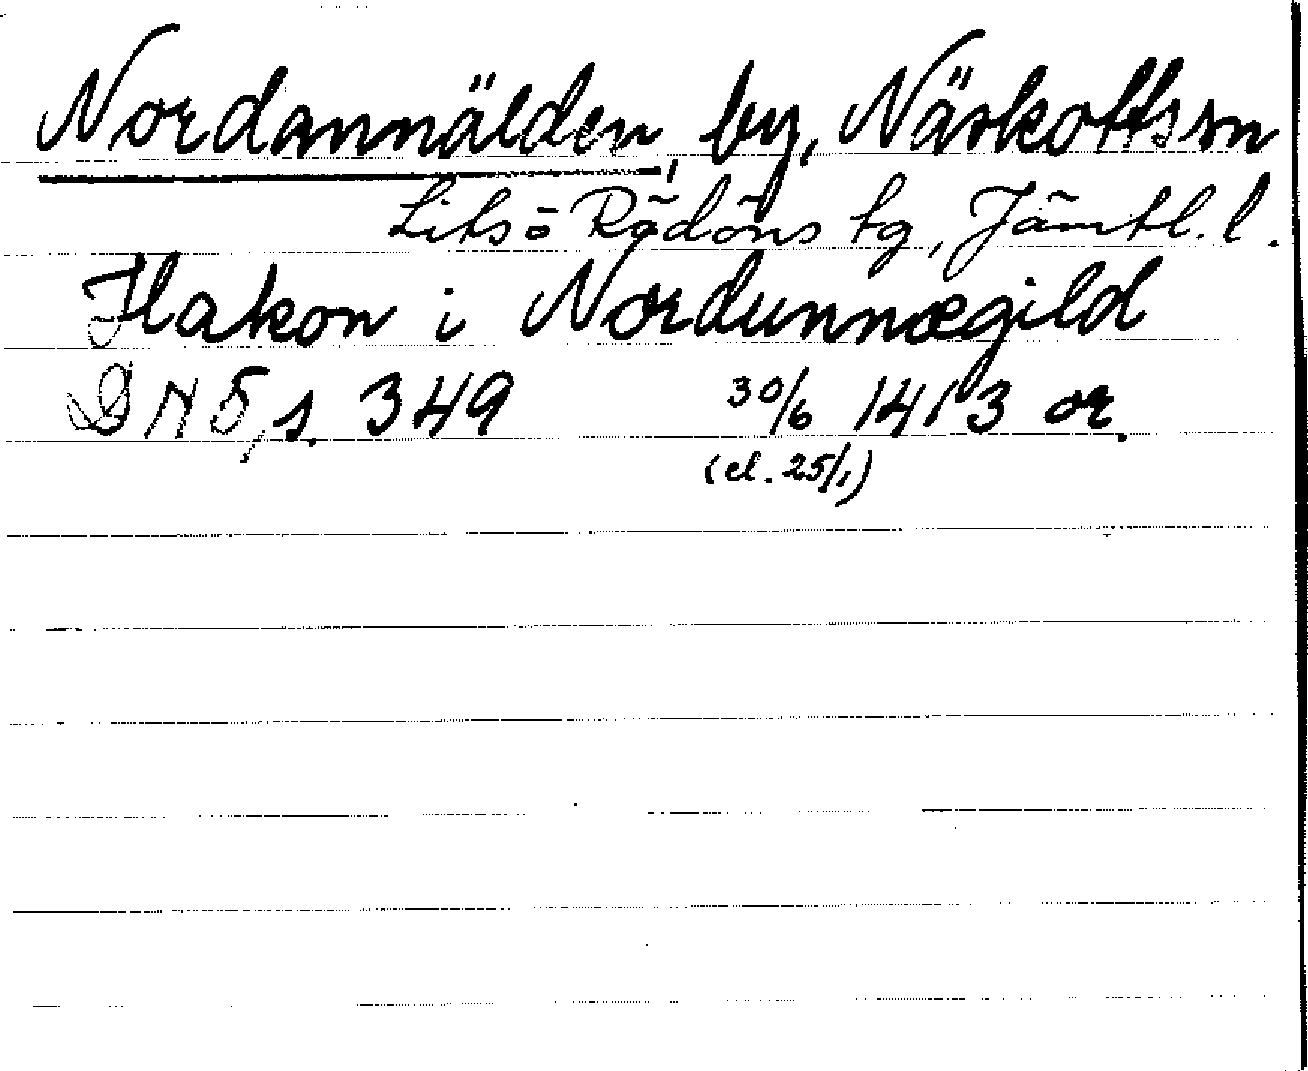 Nordannälden, by, Näskotts sn
Lits o Rödöns tg, Jämtl. l.
Hakon i Nordunnægild
DN 5, s. 349 30/6 1413 or.
(el. 25/1)